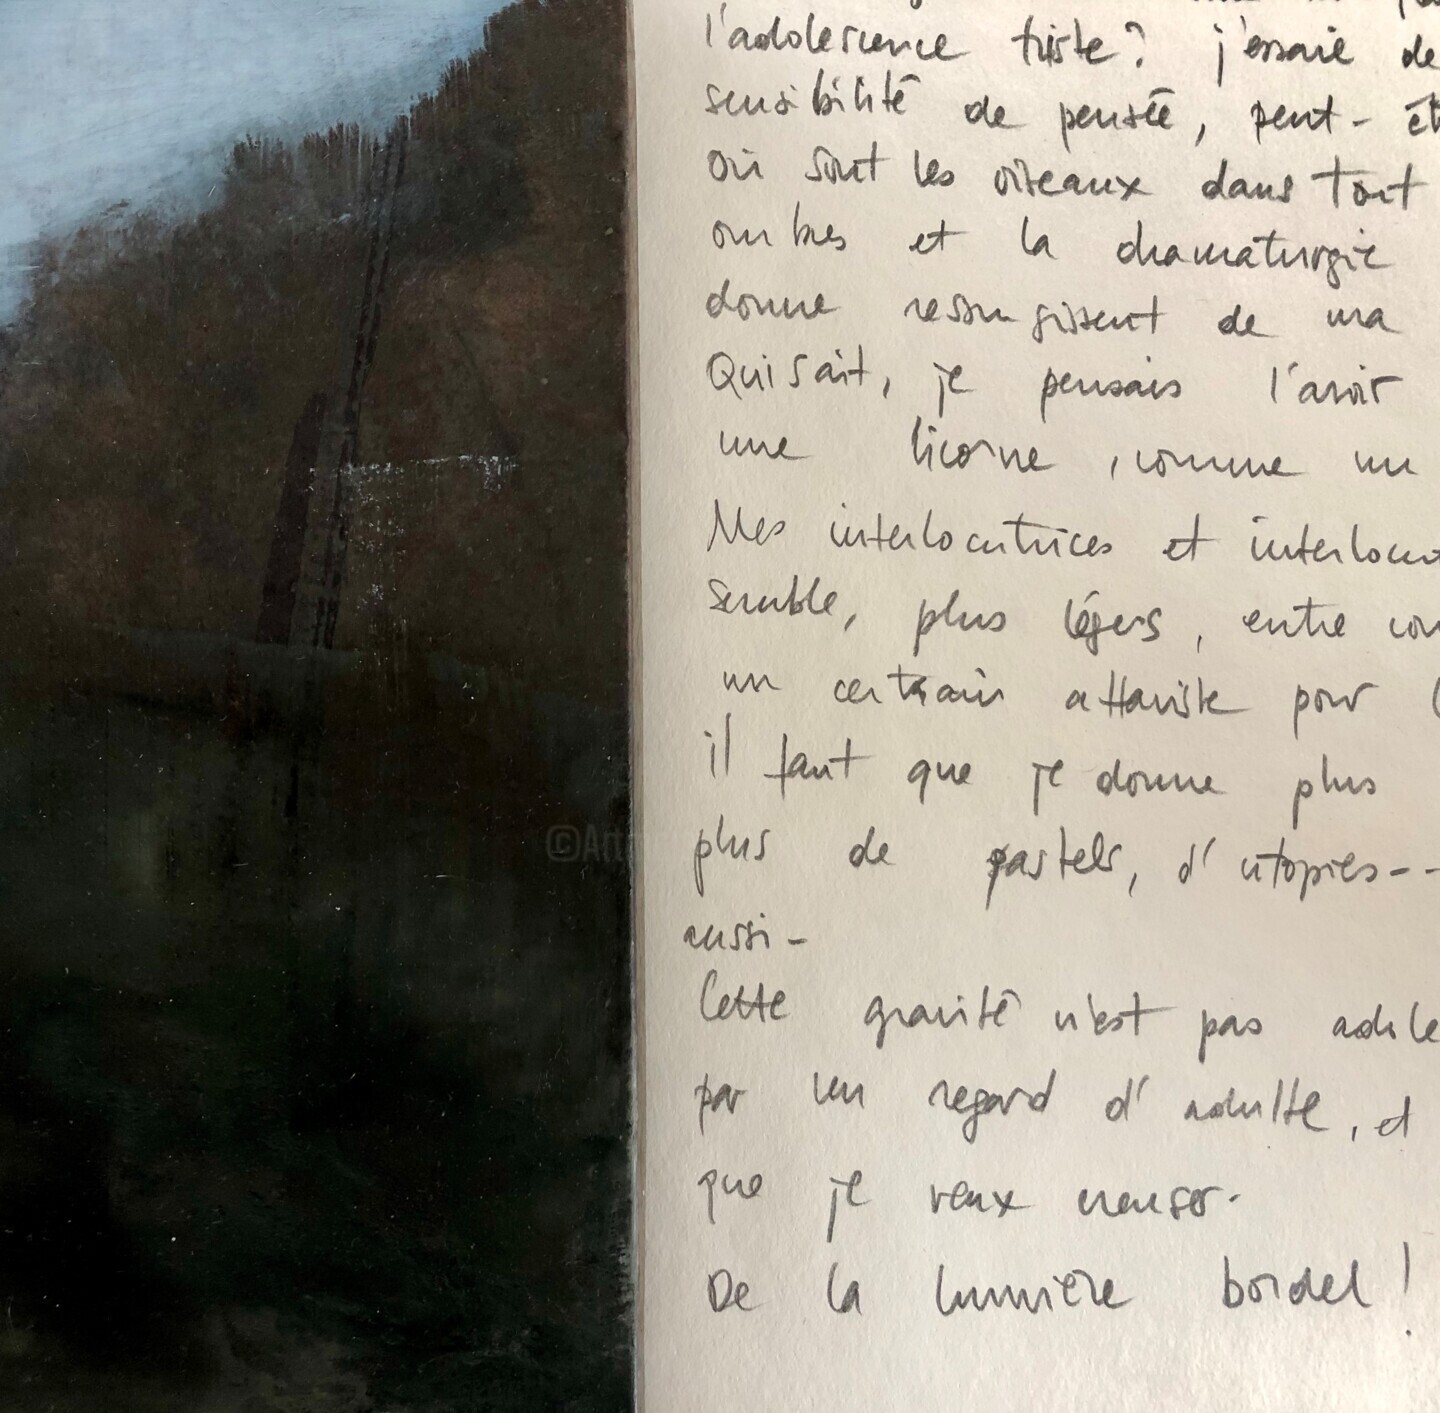 l'adolescence triste? j'essaie de
sensibilité de pensée, peut-êt
où sont les oiseaux dans tout
ombres et la dramaturgie
donne resurgissent de ma
Qui sait, je pensais l'avoir
une licorne, comme un
Mes interlocutrices et interlocut
semble, plus légers, entre con
un certain pour
il faut que je donne plus
plus de pastels, d'utopies--
aussi-
Cette gravité n'est pas adole
par un regard d'adulte, et
que je veux creuser.
De la lumière bordel!
©Art